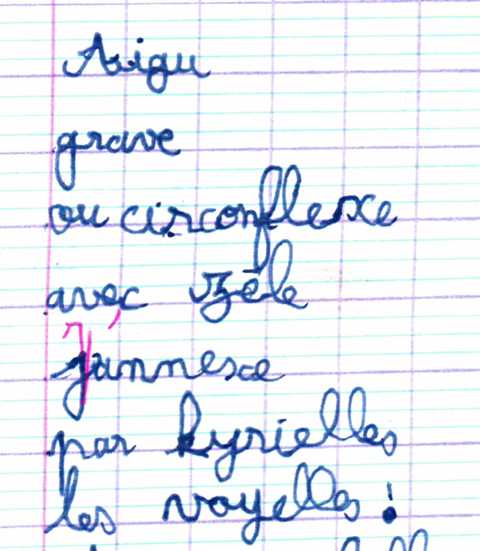 Aigu
grave
ou circonflexe
avec zèle
j'annexe
par kyrielles
les voyelles !